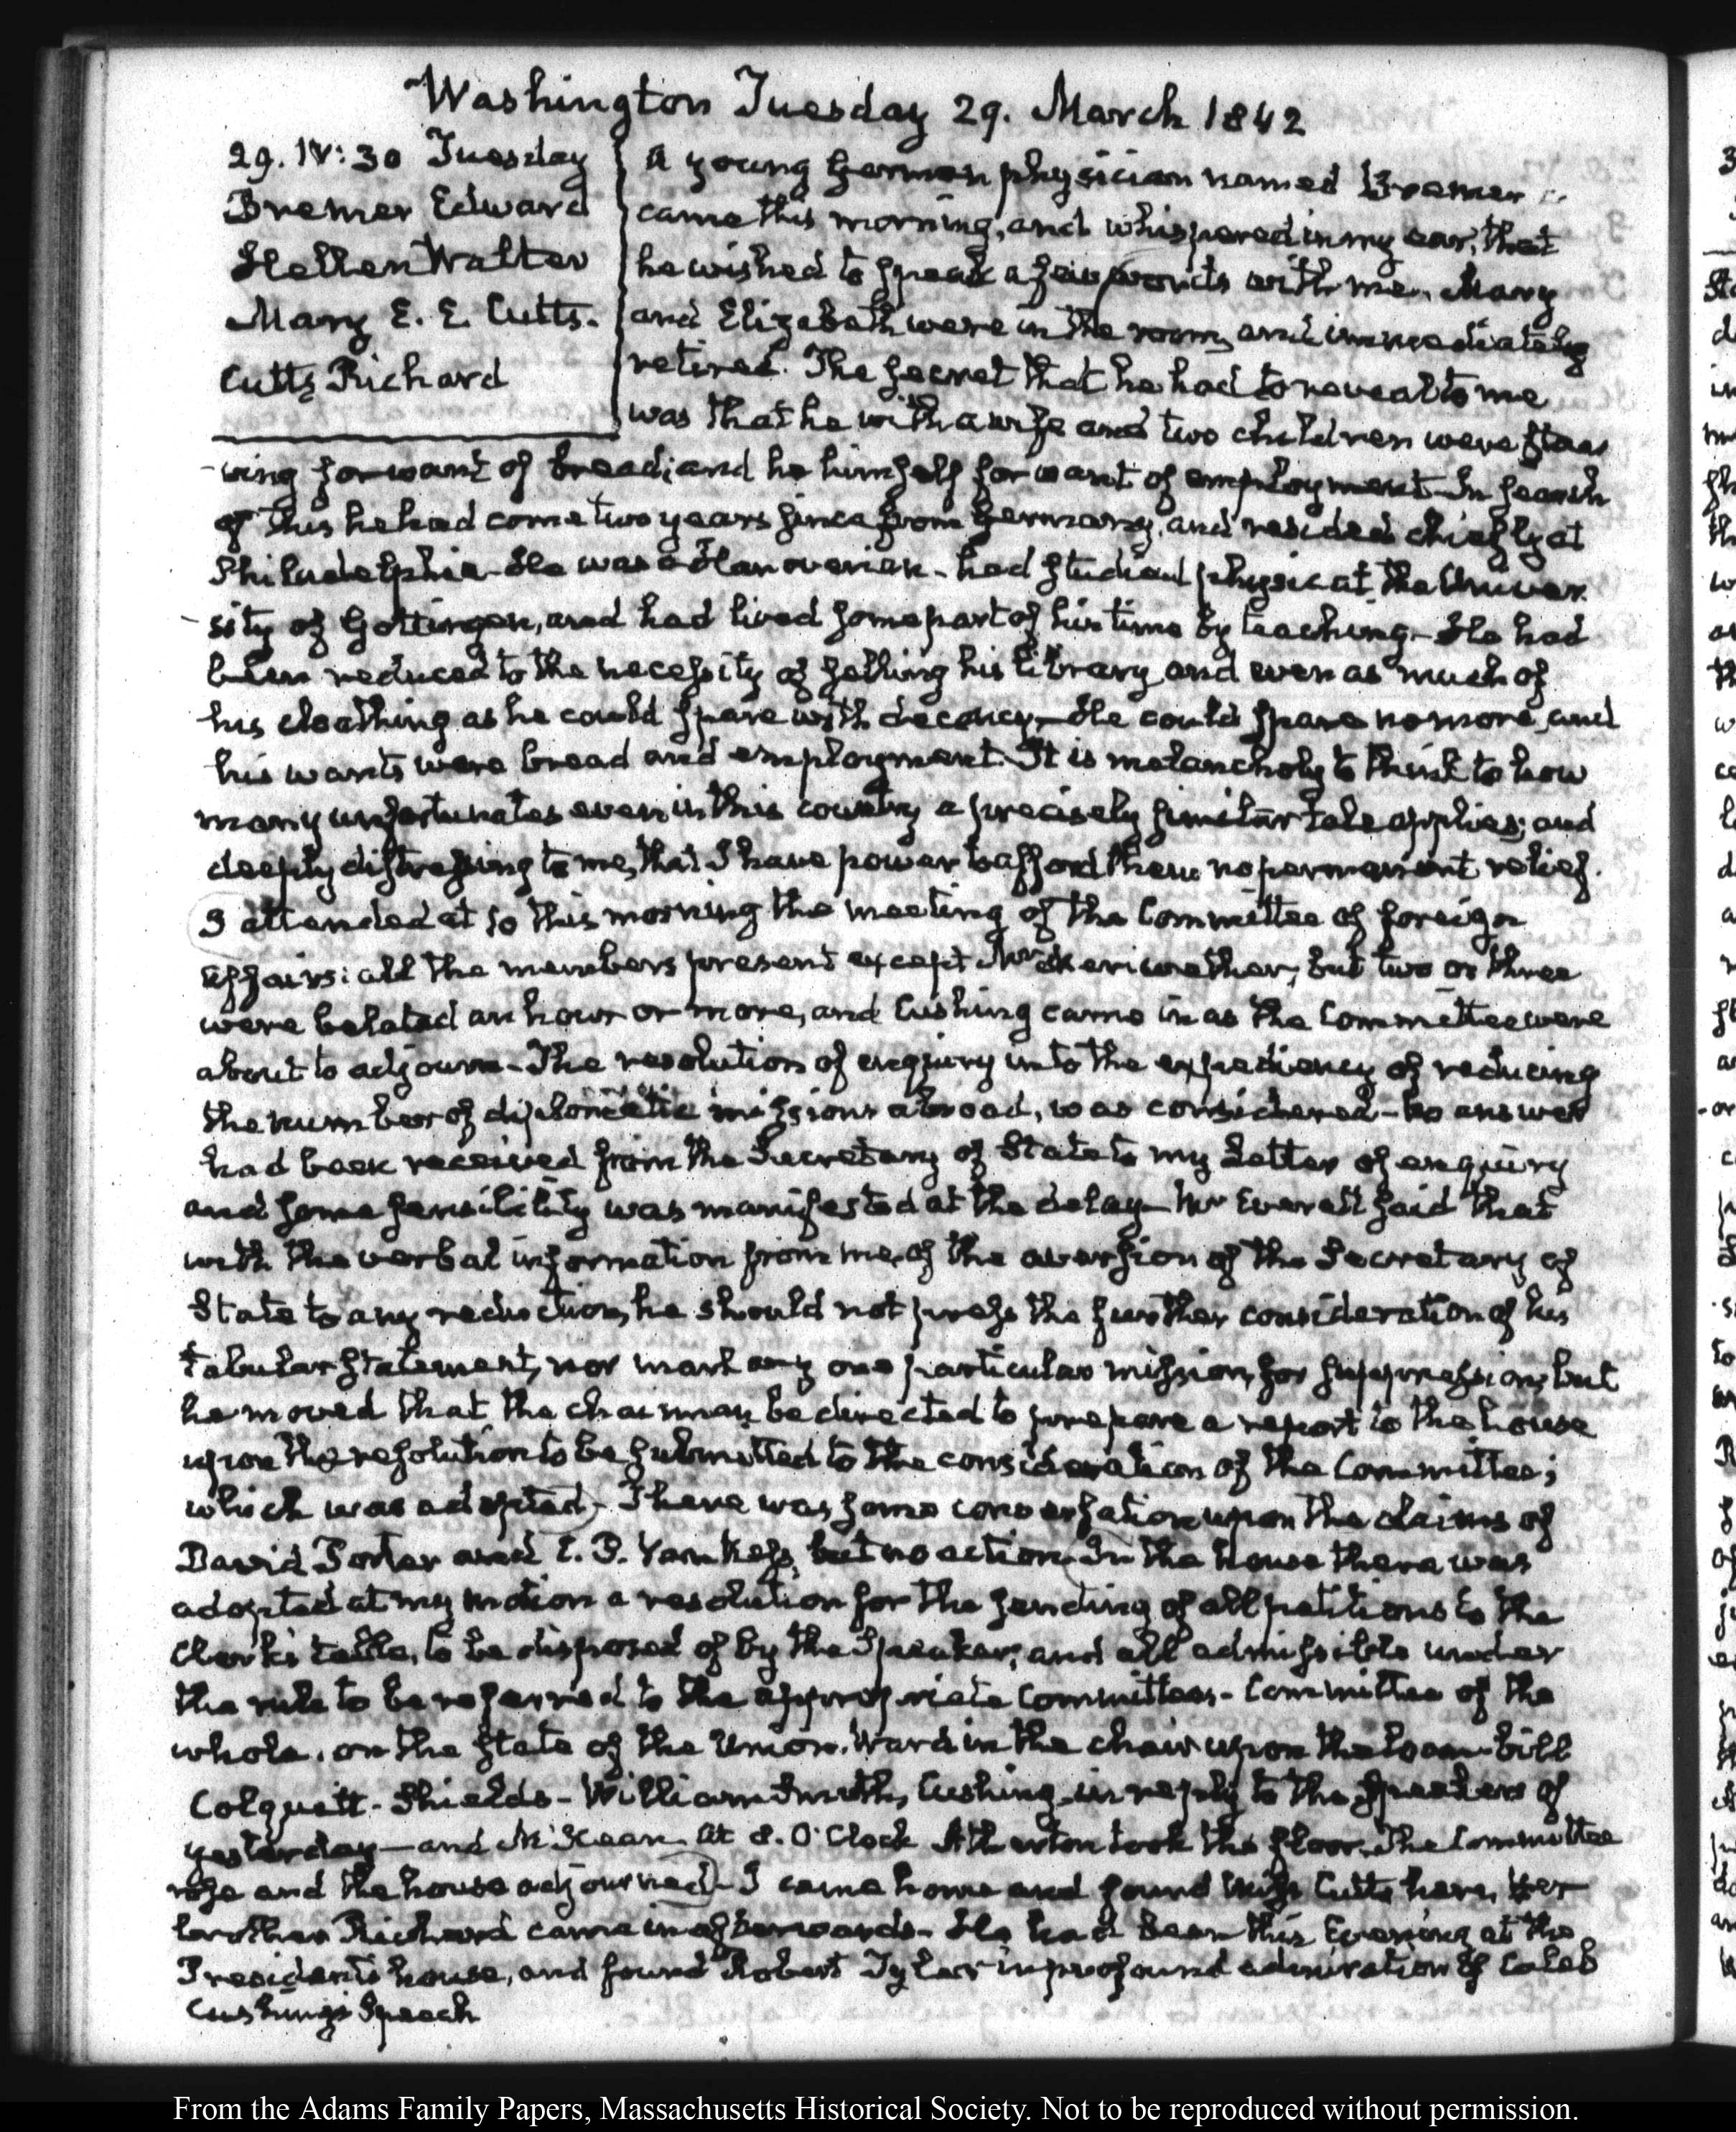 Washington Tuesday 29. March 1842
29. IV: 30 Tuesday
Bremer Edward
Hellen Walter
Mary E. E. Cutts.
Cutts Richard
A young German physician named Bremer
came this morning, and whispered in my ear, that
he wished to speak a few words with me. Mary
and Elizabeth were in the room, and immediately
retired. The secret that he had to reveal to me
was that he with a wife and two children were star
-ving for want of bread; and he himself for want of employment. In search
of this he had come two years since from Germany, and resided chiefly at
Philadelphia. He was a Hanoverian - had studied physic at the Univer
-sity of Gottingen, and had lived some part of his time by teaching. He had
been reduced to the necessity of selling his library and even as much of
his cloathing as he could spare with decency. He could spare no more, and
his wants were bread and employment. It is melancholy to think to how
many unfortunates even in this country a precisely similar tale applies; and
deeply distressing to me, that I have power to afford them no permanent relief.
I attended at 10 this morning the meeting of the Committee of foreign
affairs: all the members present except Mr Meriwether; but two or three
were belated an hour or more, and Cushing came in as the Committee were
about to adjourn - The resolution of enquiry into the expediency of reducing
the number of diplomatic missions abroad, was considered - no answer
had been received from the Secretary of State to my Letter of enquiry
and some sensibility was manifested at the delay - Mr Everett said that
with the verbal information from me, of the aversion of the Secretary of
State to any reduction, he should not press the further consideration of his
tabular statement, nor mark any one particular mission, for suppression, but
he moved that the chairman be directed to prepare a report to the house
upon the resolution to be submitted to the consideration of the Committee;
which was adopted - There was some conversation upon the claims of
David Porter and E. B. but no action. In the house there was
adopted at my motion a resolution for the sending of all petitions to the
Clerk's table, to be disposed of by the Speaker; and all admissible under
the rule to be referred to the appropriate Committees - Committee of the
whole, on the state of the Union. Ward in the chair upon the loan-bill
Colquitt - Shields - William Smith, Cushing in reply to the speakers of
yesterday - and McKean. At 8. O'Clock Atherton took the floor. The Committee
rose and the house adjourned - I came home and found Miss Cutts here, her
brother Richard came in afterwards - He had been this Evening at the
President's house, and found Robert Tyler in profound admiration of Caleb
Cushing's Speech
From the Adams Family Papers, Massachusetts Historical Society. Not to be reproduced without permission.